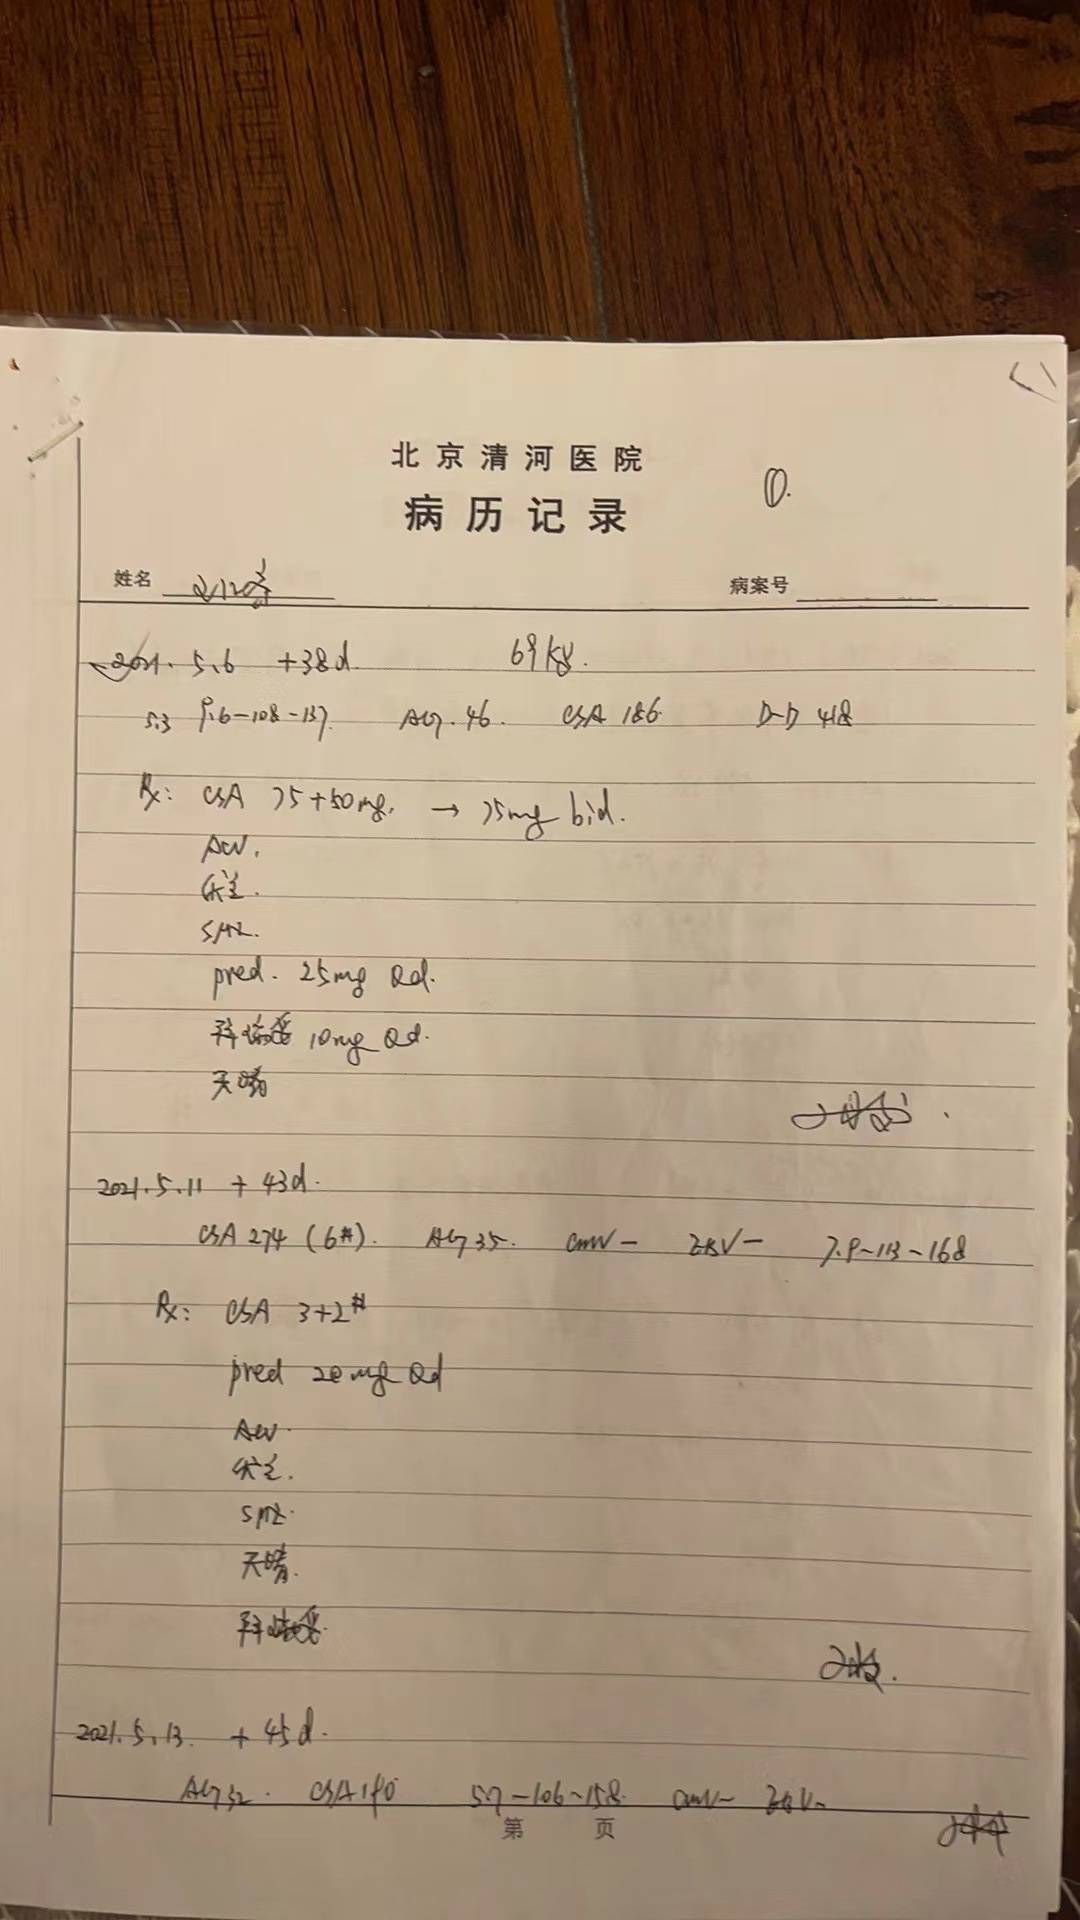 北京清河医院
病历记录
①.
姓名
病案号
2021. 5.6 +38d. 69kg.
5.3 9.6-108-137. 46. CsA 186 D-D 418
Rx: CsA 75+50mg. → 75mg bid.
ACV.
SMZ.
pred. 25mg Qd.
10mg Qd.
天晴
2021.5.11 + 43d.
CsA 274 (6#). 35. CMV - EBV - 7.9-113-168
Rx: CsA 3+2#
pred 20mg Qd
ACV.
SMZ.
天晴.
2021.5.13. + 45d.
32. CsA 190 5.7-106-158. CMV- EBV-
第 页